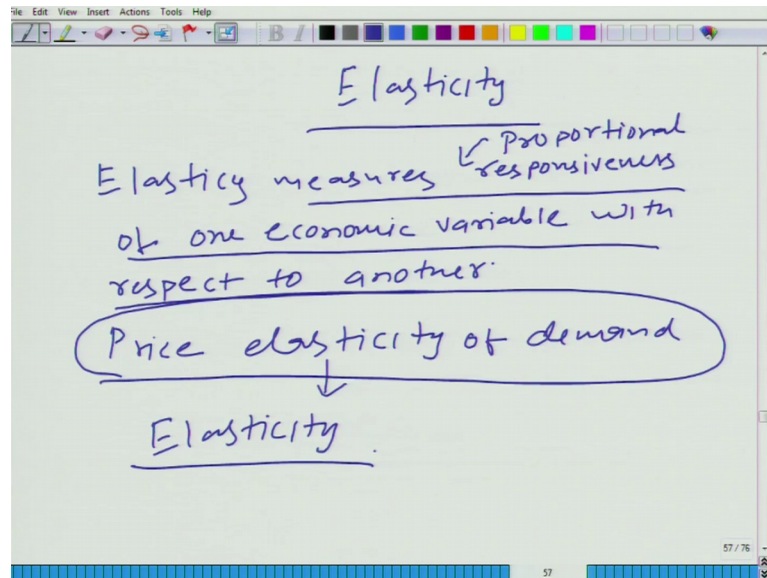 File Edit View Insert Actions Tools Help
Elasticity
Proportional
Elasticy measures responsiveness
of one economic variable with
respect to another.
Price elasticity of demand
Elasticity
57 / 76
57